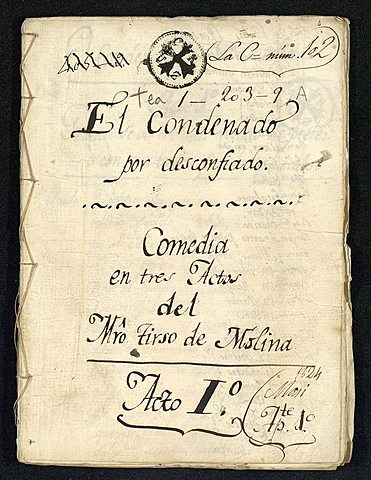 La C= núm. 102
Tea 1-203-9, A
El Condenado
por desconfiado.
Comedia
en tres Actos
del
Mrô Tirso de Molina
1824
Acto I.º
Ap. 1º